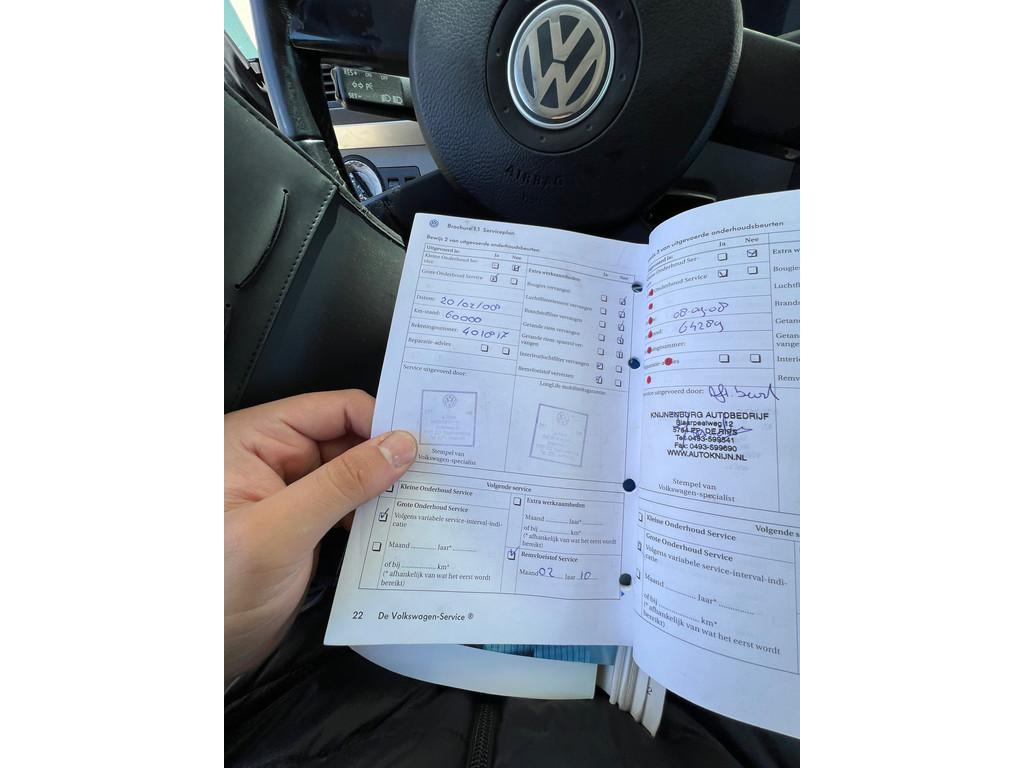 RES+ ON OFF
SET-
AIRBAG
Brochure 1.1 Serviceplan
Bewijs 2 van uitgevoerde onderhoudsbeurten
Uitgevoerd is: Ja Nee
Kleine Onderhoud Ser-
vice
Grote Onderhoud Service
Datum: 20/02/008
Km-stand: 60000
Rekeningnummer: 401817
Reparatie-advies
Extra werkzaamheden Ja Nee
Bougies vervangen
Luchtfilterelement vervangen
Brandstoffilter vervangen
Getande riem vervangen
Getande riem-spanrol ver-
vangen
Interieurluchtfilter vervangen
Remvloeistof verversen
Service uitgevoerd door:
Stempel van
Volkswagen-specialist
LongLife-mobiliteitsgarantie
Volgende service
Kleine Onderhoud Service
Grote Onderhoud Service
Volgens variabele service-interval-indi-
catie
Maand Jaar*
of bij km*
(* afhankelijk van wat het eerst wordt
bereikt)
Extra werkzaamheden
Maand Jaar*
of bij km*
(* afhankelijk van wat het eerst wordt
bereikt)
Remvloeistof Service
Maand 02 Jaar 10
22 De Volkswagen-Service ®
Bewijs 3 van uitgevoerde onderhoudsbeurten
Ja Nee
Onderhoud Ser-
Onderhoud Service
08-09-08
64289
ningnummer:
Extra w
Bougies
Luchtfi
Brands
Getand
Getan
vange
Interi
Remv
uitgevoerd door:
KNIJNENBURG AUTOBEDRIJF
Blaarpealweg 12
DE RIPS
Tel: 0493-599541
Fax: 0493-599690
WWW.AUTOKNIJN.NL
Stempel van
Volkswagen-specialist
Volgende s
Kleine Onderhoud Service
Grote Onderhoud Service
Volgens variabele service-interval-indi-
catie
Maand Jaar*
of bij km*
(* afhankelijk van wat het eerst wordt
bereikt)